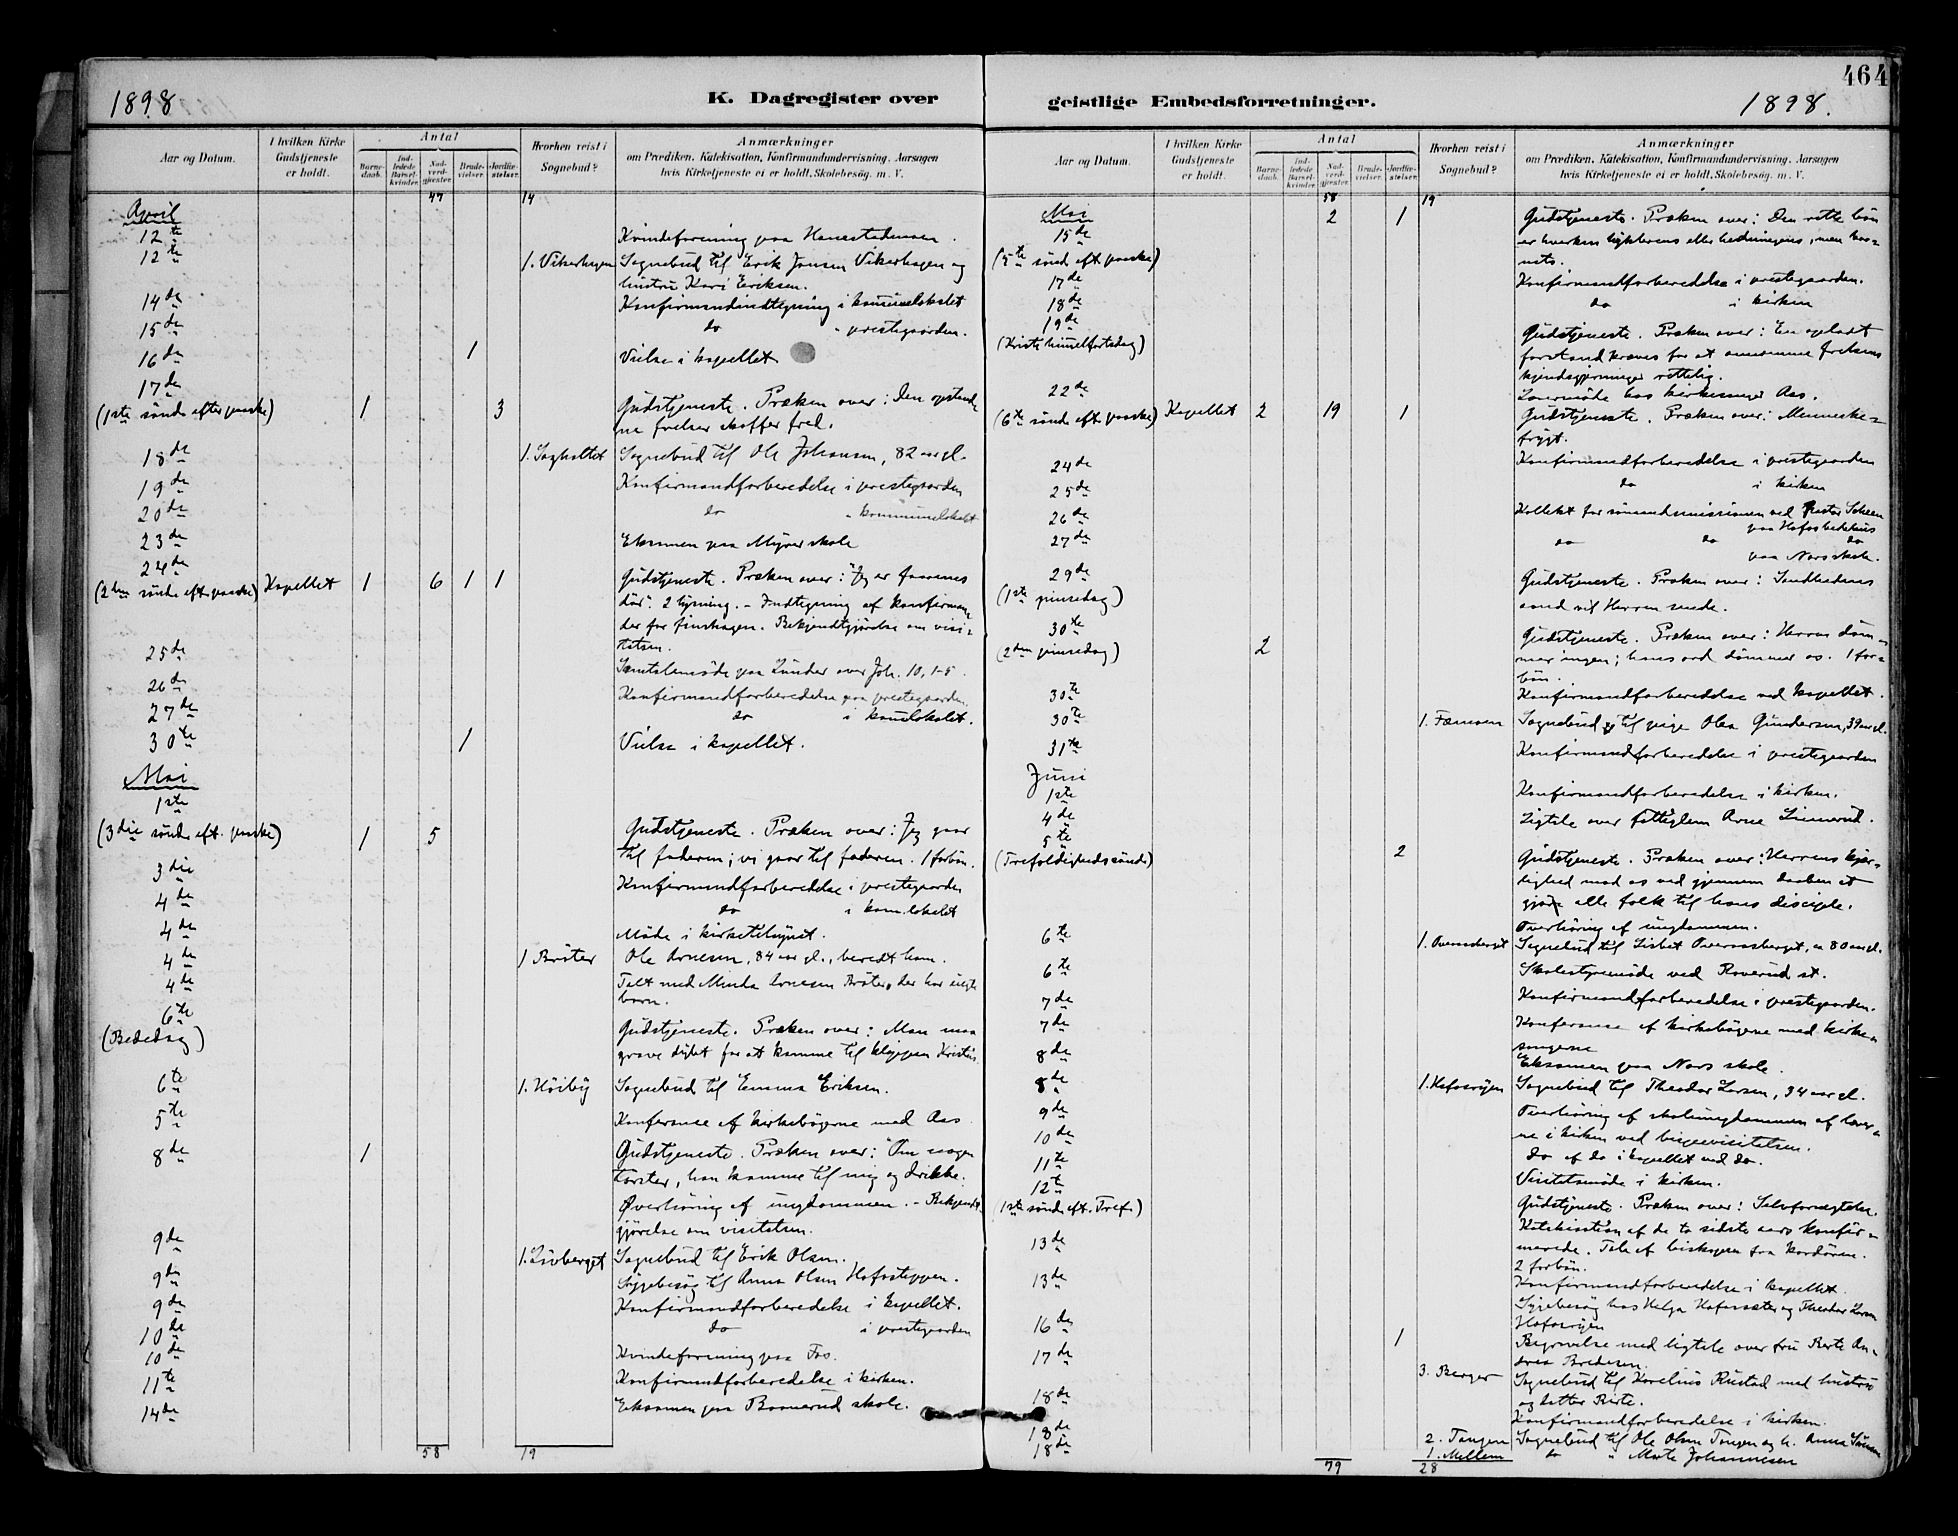 464
1898
K. Dagregister over
geistlige Embedsforretninger.
1898.
Aar og Datum.
I hvilken Kirke Gudstjeneste er holdt.
Antal
Barne-daab.
Ind-ledede Barsel-kvinder.
Nad-verd-gjester.
Brude-vielser.
Jordfæ-stelser.
Hvorhen reist i Sognebud?
Anmærkninger
om Prædiken, Katekisation, Konfirmandundervisning, Aarsagen
hvis Kirketjeneste ei er holdt, Skolebesøg m. V.
47 14
April
12te Kvindeforening paa
12te 1. Vikerhagen Sognebud til Erik Jonsen Vikerhagen og
hustru Kari Eriksen.
14de Konfirmandindtegning i kommunelokalet
15de do " prestegaarden.
16de 1 Vielse i kapellet
17de
(1ste sönd. efter paaske) 1 3 Gudstjeneste. Præken over: Den opstand-
ne frelser skaffer fred.
18de 1. Sagholtet Sognebud til Ole Johansen, 82 aar gl.
19de Konfirmandforberedelse i prestegaarden
20de do " kommunelokalet
23de Eksamen paa Myrer skole
24de
(2den sönd. eft. paaske) Kapellet 1 6 1 1 Gudstjeneste. Præken over: "Jeg er faarenes
dör". 2 lysning. - Indtegning af konfirman-
der for finskogen. Bekjendtgjörelse om visi-
tatsen.
25de Samtalemöde paa Lunder over Joh. 10, 1-5
26de Konfirmandforberedelse paa prestegaarden
27de do i komlokalet.
30te 1 Vielse i kapellet.
Mai
1ste
(3die sönd. eft. paaske) 1 5 Gudstjeneste. Præken over: Jeg gaar
til faderen; vi gaar til faderen. 1 forbön.
3die Konfirmandforberedelse i prestegaarden
4de do i kom.lokalet
4de Möde i kirketilsynet.
4de 1 Bröter Ole Arnesen, 84 aar gl., beredt ham.
4de Talt med Minda Arnesen Bröter, der har uegte
barn.
6te
(Bededag) Gudstjeneste. Præken over: Man maa
grave dybt for at komme til klippen Kristus.
6te 1. Höiby Sognebud til Emma Eriksen.
5te Konferanse af kirkebögerne med Aas
8de 1 Gudstjeneste. Præken over: "Om nogen
törster, han komme til mig og drikke.
Overhöring af ungdommen. - Bekjendt-
gjörelse om visitatsen.
9de 1. Lövberget Sognebud til Erik Olsen.
9de Sygebesög til Anna Olsen Hofosteppen.
9de Konfirmandforberedelse i kapellet.
10de do i prestegaarden
10de Kvindeforening paa Fos.
11te Konfirmandforberedelse i kirken.
14de Eksamen paa skole.
58 19
Aar og Datum.
I hvilken Kirke Gudstjeneste er holdt.
Antal
Barne-daab.
Ind-ledede Barsel-kvinder.
Nad-verd-gjester.
Brude-vielser.
Jordfæ-stelser.
Hvorhen reist i Sognebud?
Anmærkninger
om Prædiken, Katekisation, Konfirmandundervisning, Aarsagen
hvis Kirketjeneste ei er holdt, Skolebesøg m. V.
58 19
Mai
15de 2 1 Gudstjeneste. Præken over: Den rette bön
er hverken hyklerens eller hedningens, men bar-
nets.
(5te sönd. eft. paaske)
17de Konfirmandforberedelse i prestegaarden.
18de do i kirken
19de
(Kristi himmelfartsdag) Gudstjeneste. Præken over: En opladt
forstand kræves for at annamme frelsens
kjendsgjerninger rettelig.
22de hos kirkesanger Aas.
(6te sönd. eft. paaske) Kapellet 2 19 1 Gudstjeneste. Præken over: Menneske-
frygt.
24de Konfirmandforberedelse i prestegaarden
25de do i kirken
26de Kollekt for sömandsmissionen ved Pastor
paa Hofos bedehus
27de do do do
paa Nors skole.
29de
(1ste pinsedag) Gudstjeneste. Præken over: Sandhedens
aand vil Herren sende.
30te
(2den pinsedag) 2 Gudstjeneste. Præken over: Herren döm-
mer ingen; hans ord dömmer os. 1 for-
bön.
30te Konfirmandforberedelse ved kapellet.
30te 1. Sognebud til pige Olea Gundersen, 39 aar gl.
31te Konfirmandforberedelse i prestegaarden
Juni
1ste Konfirmandforberedelse i kirken.
4de Ligtale over fattiglem Arne Linnerud.
5te
(Trefoldighedssönd.) 2 Gudstjeneste. Præken over: Herrens kjær-
lighed mod os ved gjennem daaben at
gjöre alle folk til hans disciple.
Overhöring af ungdommen.
6te 1. Overaasberget Sognebud til Lisbet Overaasberget, ca 80 aar gl.
6te Skolestyremöde ved Roverud st.
7de Konfirmandforberedelse i prestegaarden.
7de Konferanse af kirkebögerne med kirke-
sangerne
8de Eksamen paa Nors skole.
8de 1. Hofosröjen Sognebud til Theodor Larsen, 34 aar gl.
9de Overhöring af skoleungdommen af
i kirken ved bispevisitatsen.
10de do af do i kapellet ved do.
11te Visitatsmöde i kirken.
12te
(1ste sönd. eft. Tref.) Gudstjeneste. Præken over: Selvfornegtelse.
Katekisation af de to sidste aars konfir-
merede. Tale af biskopen fra kordören.
2 forbön.
13de Konfirmandforberedelse i kapellet.
13de Sygebesög hos Helga Hofossæter og Theodor Larsen
Hofosröjen
16de 1 Begravelse med ligtale over fru Berte An-
drea Bredesen.
17de 3. Berger Sognebud til Karelius Rustad med hustru
og datter Berte.
18de Konfirmandforberedelse i kirken.
18de 2. Tangen Sognebud til Ole Olsen Tangen og h. Anna
18de 1. Mellem do " Marte Johannesen
79 28